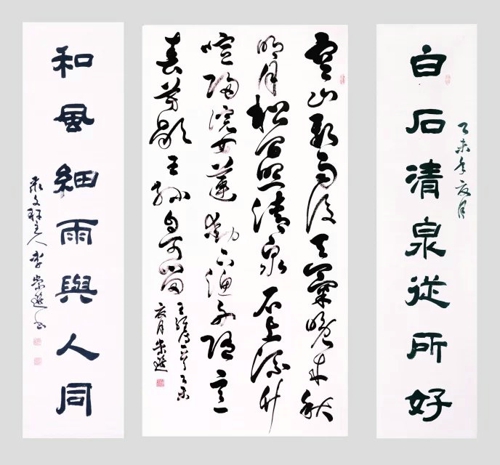 白石清泉從所好
乙未年夏月
空山新雨後天氣晚來秋
明月松間照清泉石上流竹
喧歸浣女蓮動下漁舟隨意
春芳歇王孫自可留
王維詩一首乙未
夏月
和風細雨與人同
主人李崇